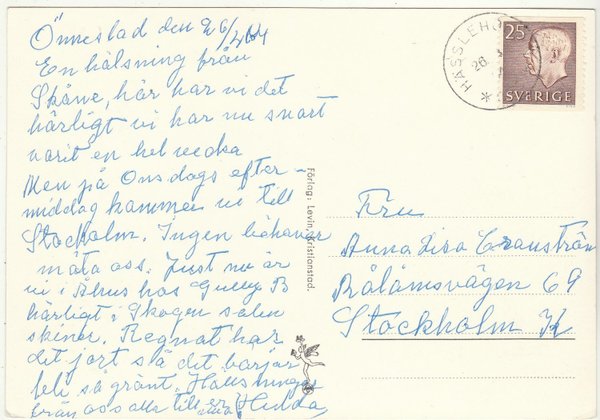 Önneslad den 26/4 64
En hälsning från
Skåne, här har vi det
härligt vi har nu snart
varit en hel vecka
Men på Onsdags efter-
middag kommer vi till
Stockholm. Ingen behöver
möta oss. Just nu är
vi i Åhus hos Gully B
härligt i Skogen solen
skiner. Regnat har
det gort så det börjar
bli så grönt. Hälsningar
från oss alla till er Hedda
HÄSSLEHO
26
25
SVERIGE
Förlag: Levin, Kristianstad.
Fru
Anna Lisa Cranström
Rålämsvägen 69
Stockholm K